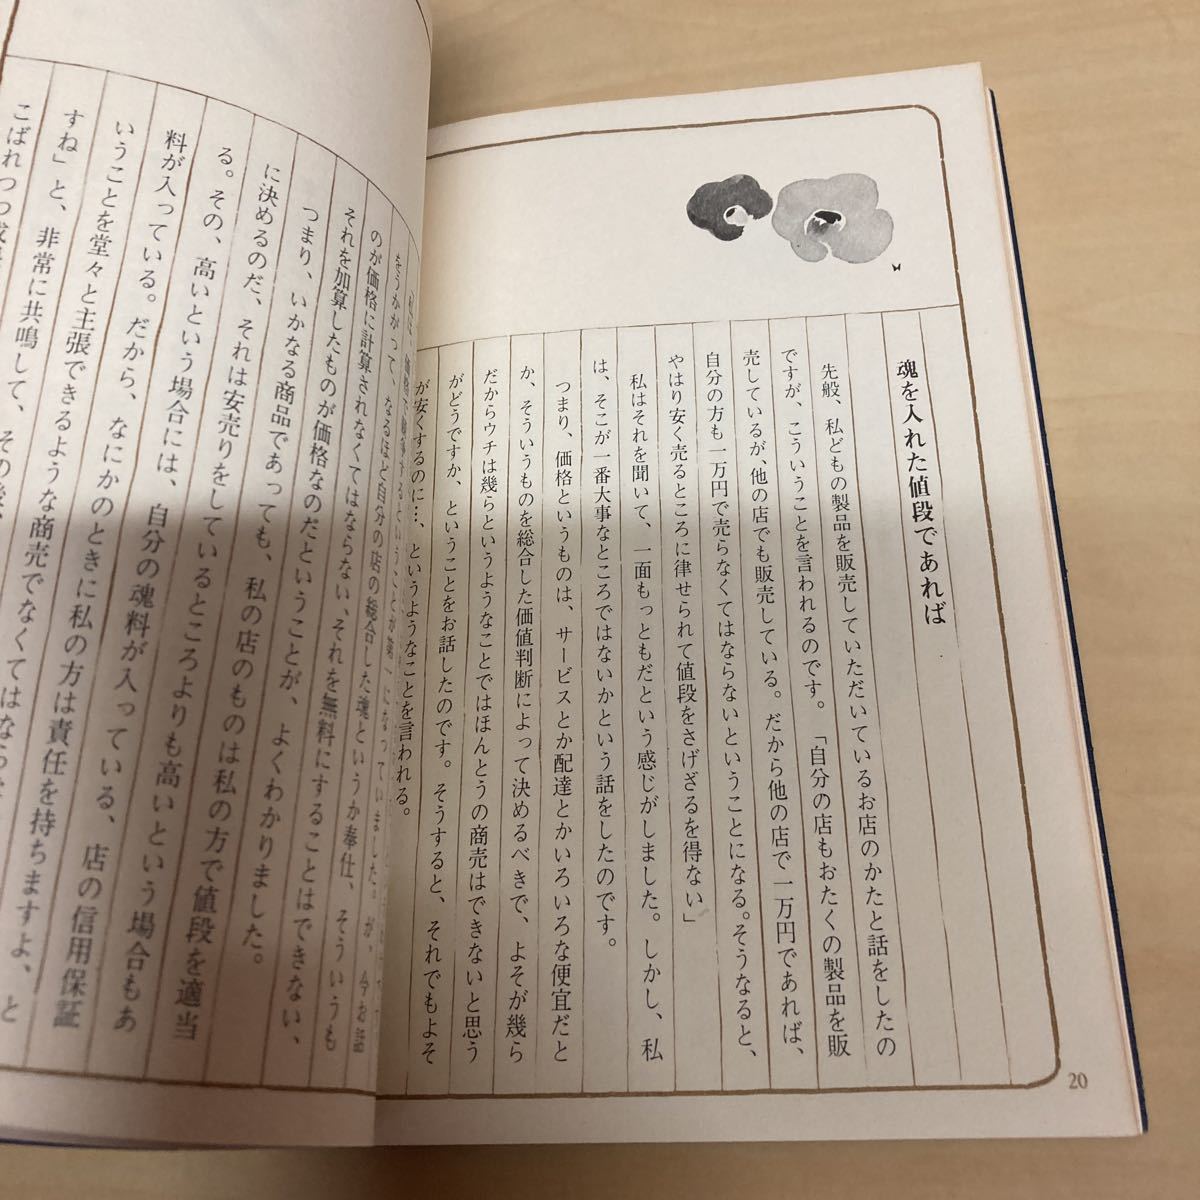 魂を入れた値段であれば
先般、私どもの製品を販売していただいているお店のかたと話をしたの
ですが、こういうことを言われるのです。「自分の店もおたくの製品を販
売しているが、他の店でも販売している。だから他の店で一万円であれば、
自分の方も一万円で売らなくてはならないということになる。そうなると、
やはり安く売るところに律せられて値段をさげざるを得ない」
私はそれを聞いて、一面もっともだという感じがしました。しかし、私
は、そこが一番大事なところではないかという話をしたのです。
つまり、価格というものは、サービスとか配達とかいろいろな便宜だと
か、そういうものを総合した価値判断によって決めるべきで、よそが幾ら
だからウチは幾らというようなことではほんとうの商売はできないと思う
がどうですか、ということをお話したのです。そうすると、それでもよそ
が安くするのに…、というようなことを言われる。
20
をうかがって、なるほど自分の店の総合した魂というか奉仕、そういうも
のが価格に計算されなくてはならない、それを無料にすることはできない、
それを加算したものが価格なのだということが、よくわかりました。
つまり、いかなる商品であっても、私の店のものは私の方で値段を適当
に決めるのだ、それは安売りをしているところよりも高いという場合もあ
る。その、高いという場合には、自分の魂料が入っている、店の信用保証
料が入っている。だから、なにかのときに私の方は責任を持ちますよ、と
いうことを堂々と主張できるような商売でなくてはならな
すね」と、非常に共鳴して、その後
こばれつつ成